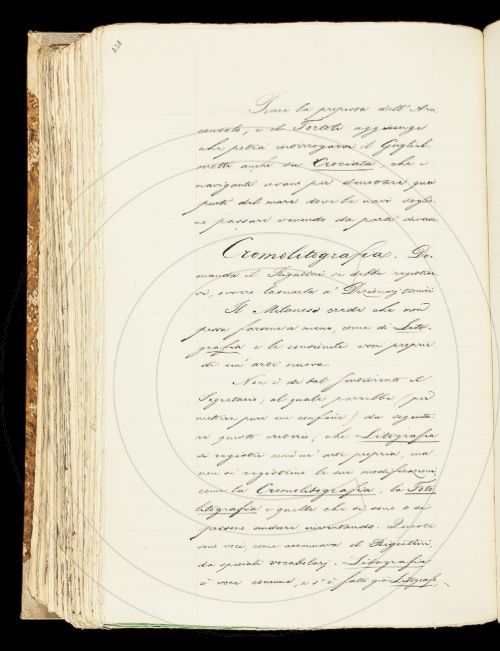 Piace la proposta dell'Arci
consolo; e il Tortoli aggiunge
che potrà interrogarsi il Guglielmotti
anche su Crociata che i
naviganti usano per denotare quei
punti del mare dove le navi soglio-
no passare venendo da parti diverse.
Cromolitografia. Do-
manda il Rigutini se debba registrar-
si, ovvero lasciarla a' Dizionarj tecnici
Il Milanesi crede che non
possa farsene a meno, come di Lito-
grafia e le consimili voci proprie
di un' arte nuova.
Non è di tal sentimento il
Segretario; al quale parrebbe (per
mettere pure un confine) da seguita-
re questo criterio; che Litografia
si registri com'un' arte propria, ma
non si registrino le sue modificazioni
come la Cromolitografia, la Foto
litografia e quelle che si sono o si
possono andare inventando. Queste
sono voci, come accennava il Rigutini,
da speciali vocabolarj. Litografia
è voce comune, e s'è fatto già Litografo,